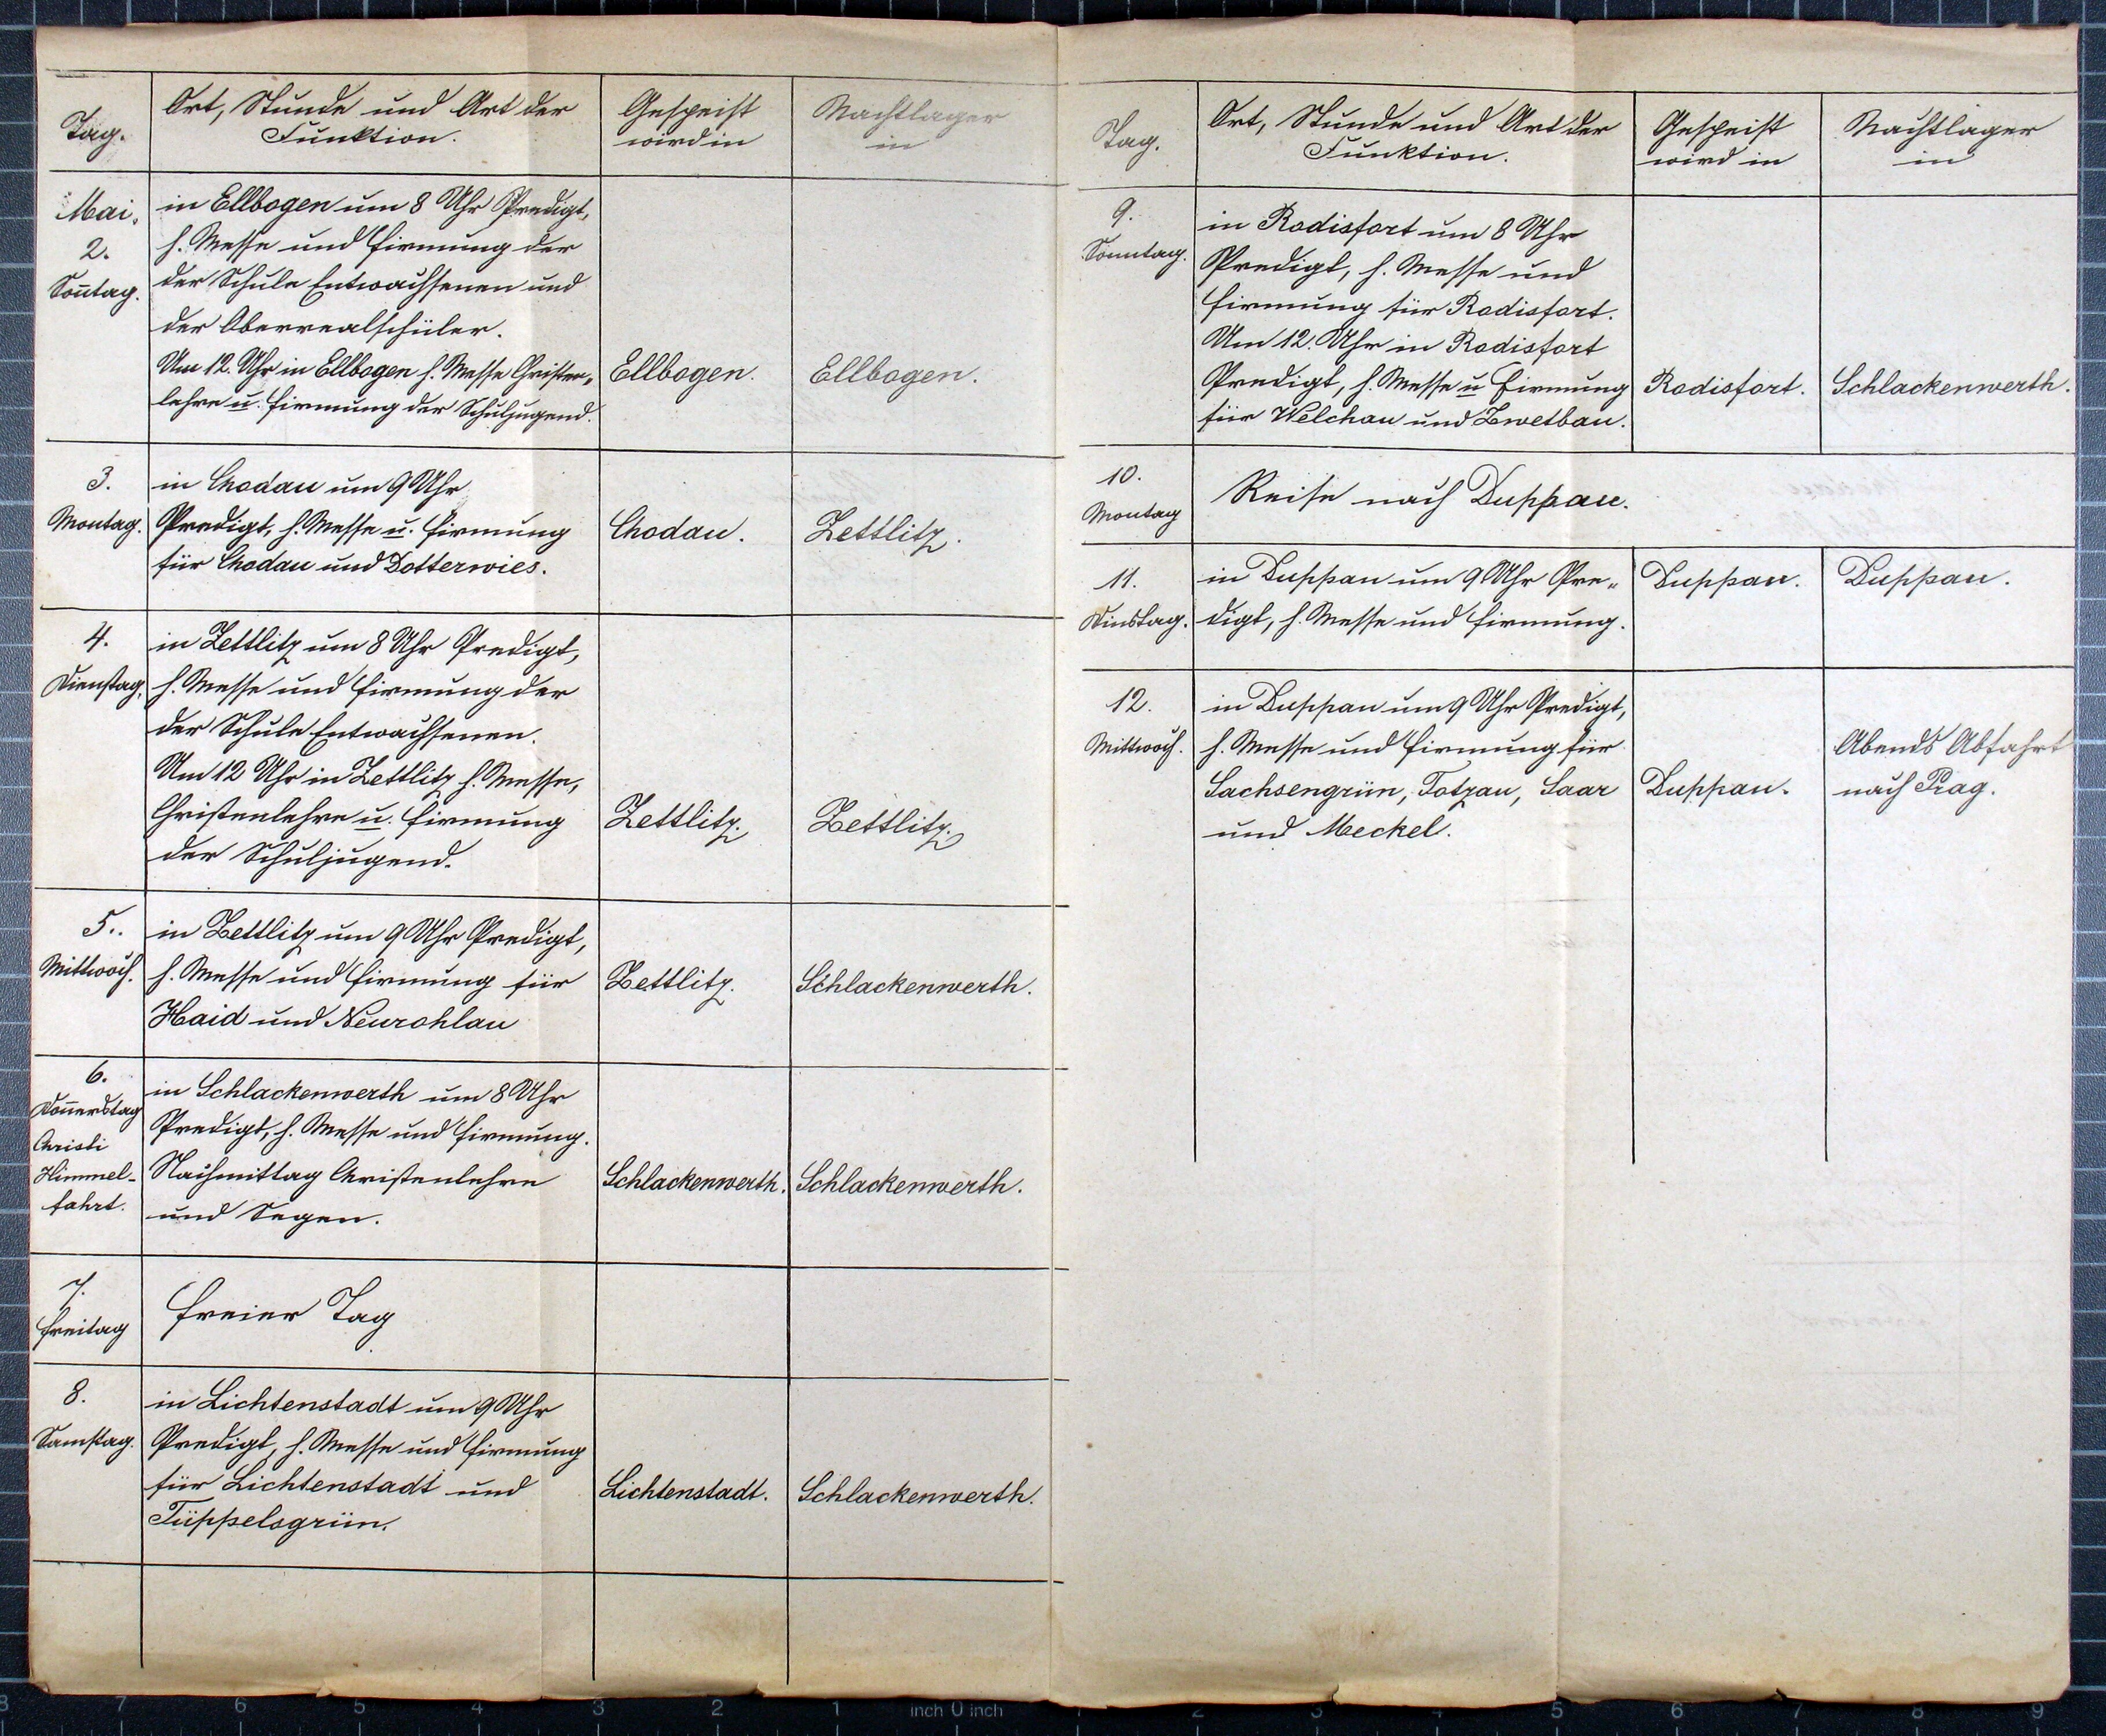 Tag.
Ort, Stunde und Art der
Funktion.
Gespeist
wird in
Nachtlager
in
Mai.
2.
Son̄tag.
in Ellbogen um 8 Uhr Predigt,
h. Messe und Firmung der
der Schule Entwachsenen und
der Oberrealschüler.
Um 12. Uhr in Ellbogen h. Messe Christen„
lehre u. Firmung der Schuljugend.
Ellbogen.
Ellbogen.
3.
Montag.
in Chodau um 9 Uhr
Predigt, h. Messe u. Firmung
für Chodau und Dotterwies.
Chodau.
Zettlitz.
4.
Dienstag.
in Zettlitz um 8 Uhr Predigt,
h. Messe und Firmung der
der Schule Entwachsenen.
Um 12 Uhr in Zettlitz h. Messe,
Christenlehre u. Firmung
der Schuljugend.
Zettlitz.
Zettlitz.
5..
Mittwoch.
in Zettlitz um 9 Uhr Predigt,
h. Messe und Firmung für
Haid und Neurohlau
Zettlitz.
Schlackenwerth.
6.
Don̄erstag
Christi
Himmel-
fahrt.
in Schlackenwerth um 8 Uhr
Predigt, h. Messe und Firmung.
Nachmittag Christenlehre
und Segen.
Schlackenwerth.
Schlackenwerth.
7.
Freitag
Freier Tag
8.
Samstag.
in Lichtenstadt um 9 Uhr
Predigt, h. Messe und Firmung
für Lichtenstadt und
Tüppelsgrün.
Lichtenstadt.
Schlackenwerth.
Tag.
Ort, Stunde und Art der
Funktion.
Gespeist
wird in
Nachtlager
in
9.
Sonntag.
in Rodisfort um 8 Uhr
Predigt, h. Messe und
Firmung für Rodisfort.
Um 12. Uhr in Rodisfort
Predigt, h. Messe u Firmung
für Welchau und Zwetbau.
Rodisfort.
Schlackenwerth.
10.
Montag
Reise nach Duppau.
11.
Dinstag.
in Duppau um 9 Uhr Pre„
digt, h. Messe und Firmung.
Duppau.
Duppau.
12.
Mittwoch.
in Duppau um 9 Uhr Predigt,
h. Messe und Firmung für
Sachsengrün, Totzau, Saar
und Meckel.
Duppau.
Abends Abfahrt
nach Prag.
8 7 6 5 4 3 2 1 inch 0 inch 1 2 3 4 5 6 7 8 9